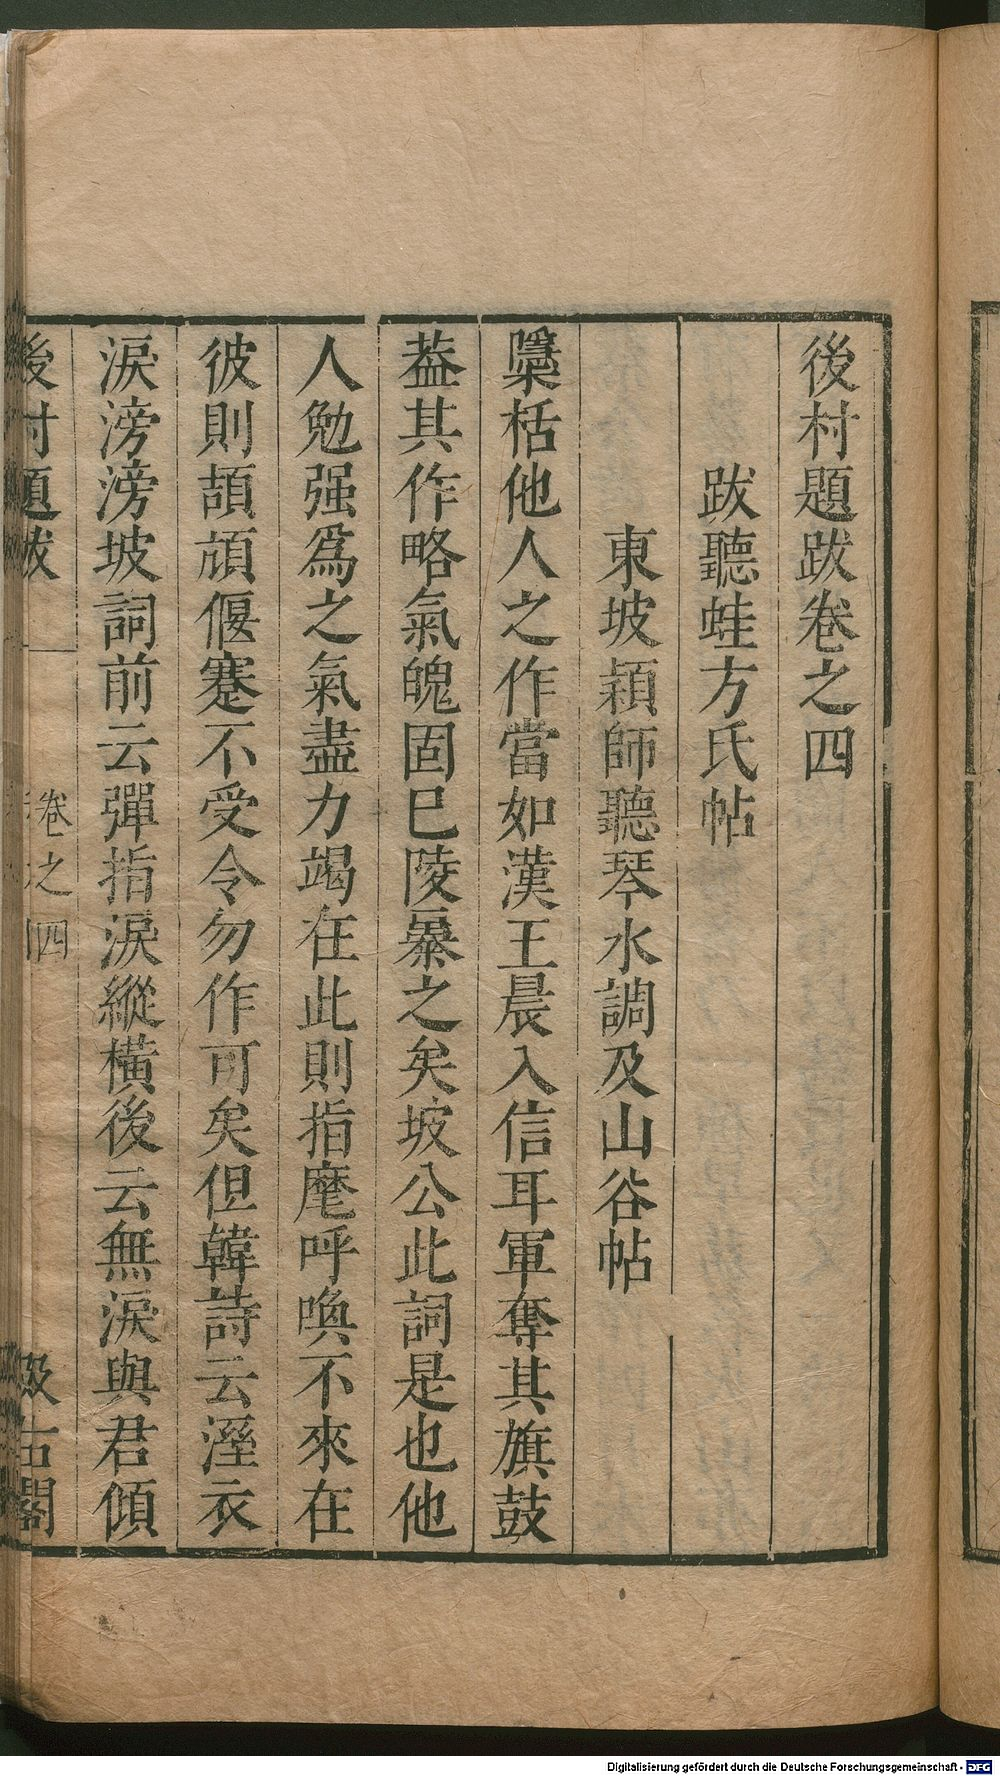 後村題跋卷之四
跋聽蛙方氏帖
東坡穎師聽琴水調及山谷帖
檃栝他人之作當如漢王晨入信耳軍奪其旗鼓
葢其作略氣魄固已陵暴之矣坡公此詞是也他
人勉强爲之氣盡力竭在此則指麾呼喚不來在
彼則頡頏偃蹇不受令勿作可矣但韓詩云溼衣
淚滂滂坡詞前云彈指淚縱橫後云無淚與君傾
後村題跋 卷之四 汲古閣
Digitalisierung gefördert durch die Deutsche Forschungsgemeinschaft - DFG